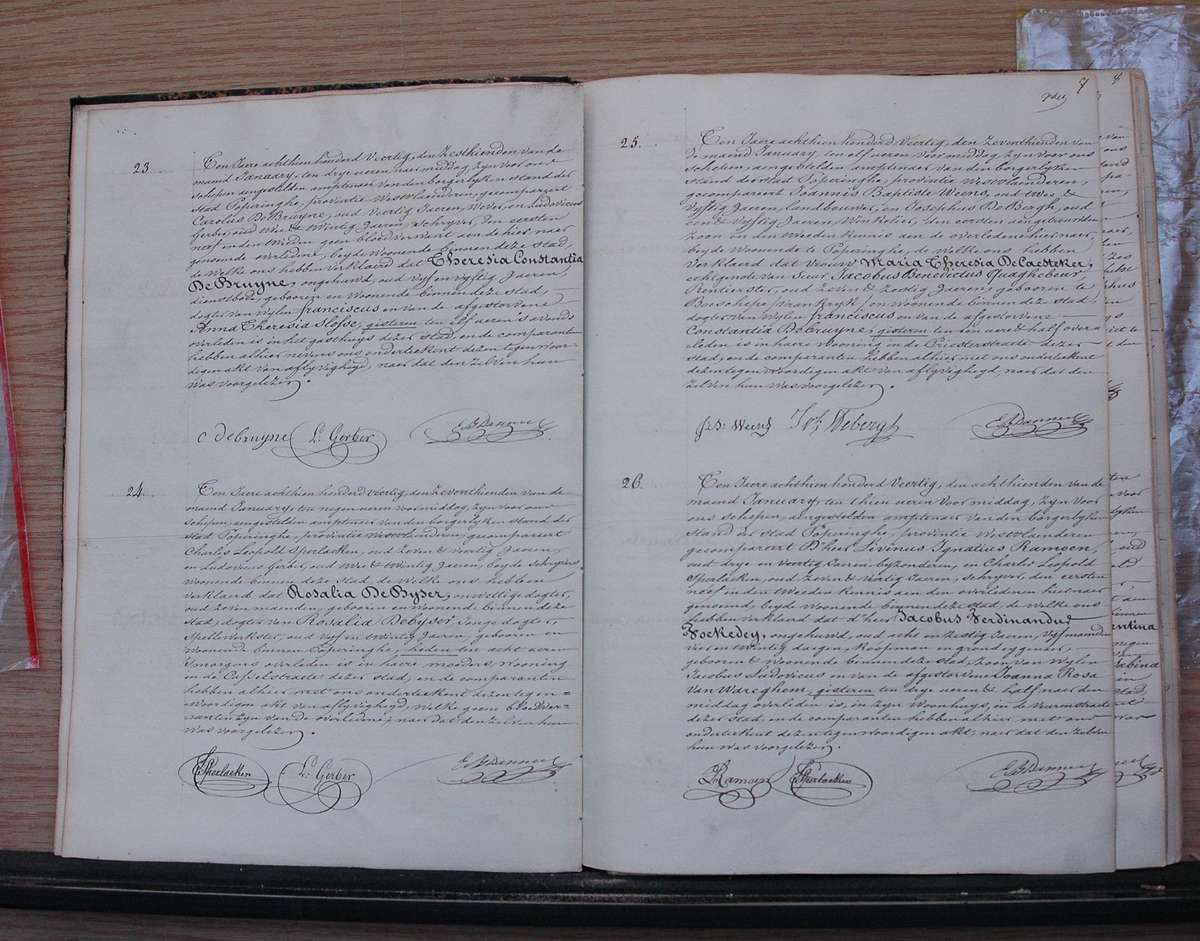 23.
Ten Jaere achthien honderd Veertig, den Zesthienden van de
maend January, ten drye ueren naer middag, zyn voor ons
schepen aengestelden amptenaer van den borgerlyken stand der
stad Poperinghe, provintie Westvlaenderen, gecompareert
Carolus De Bruyne, oud Veertig Jaeren, Wever, en Ludovicus
Gerber, oud Wee & twintig Jaeren, schryver, den eersten
noef in den tweeden geen bloedverwant aen de hier naer
genoemde overledene, beyde woonende binnen deze stad,
de Welke ons hebben verklaerd dat Theresia Constantia
De Bruyne, ongehuwd, oud vyf en vyftig Jaeren,
dienstbode, gebooren en woonende binnen deze stad,
dogter van wylen franciscus en van de afgestorvene
Anna Theresia Hosse, gisteren ten elf ueren 's avonds
overleden is in het gasthuys dezer stad, en de comparanten
hebben alhier nevens ons onderteekent dezen tegenwoor-
digen akt van aflyvigheyd, naer dat den zelven hun
was voorgelezen.
c debruyne L: Gerber
24.
Ten Jaere achthien honderd Veertig, den Zeventhienden van de
maend January, ten negen ueren voor middag, zyn voor ons
schepen, aengestelden amptenaer van den borgerlyken stand der
stad Poperinghe, provintie Westvlaenderen, gecompareert
Charles Leopold Sperlaeken, oud Zeven & Veertig Jaeren,
en Ludovicus Gerber, oud Wee & twintig Jaeren, beyde schryvers
woonende binnen deze stad, de Welke ons hebben
verklaerd dat Rosalia De Byser, onwettige dogter,
oud zeven maenden, gebooren en woonende binnen deze
stad, dogter van Rosalia Debyser Jonge dogter,
Spellewerkster, oud Vyf en twintig Jaeren, gebooren en
woonend binnen Poperinghe, heden ten acht ueren
smorgens overleden is in haere moeders wooning
in de Casselstraete dezer stad, en de comparanten
hebben alhier met ons onderteekent dezen tegen=
woordigen akt van aflyvigheyd, welke geen bloedver-
wanten zyn van de overledene, naer dat den zelven hun
was voorgelezen.
Sperlaeken L: Gerber
25.
Ten Jaere achthien honderd Veertig, den Zeventhienden van
de maend January, ten elf ueren voor middag, zyn voor ons
Schepen, aengestelden amptenaer van den borgerlyken
stand der stad Poperinghe, provintie Westvlaenderen,
gecompareert Joannes Baptiste Weens, oud twee &
Vyftig Jaeren, landbouwer, en Josephus De Bergh, oud
een & vyftig Jaeren, Winkelier, den eersten aengetrouwden
Zoon en den tweeden kennis aen de overledene hier naer,
beyde woonende te Poperinghe, de welke ons hebben
Verklaerd dat vrouw Maria Theresia De Caesteker,
echtgenote van Sieur Jacobus Benedictus Quaghebeur
Rentierster, oud zeven & zestig Jaeren, gebooren te
Boeschepe frankryk, en woonende binnen deze stad,
dogter van wylen franciscus en van de afgestorvene
Constantia Debruyne, gisteren ten een uere & half over-
leden is in haere wooning in de Priesterstraete dezer
stad, en de comparanten hebben alhier met ons onderteekent
dezen tegenwoordigen akt van aflyvigheyd, naer dat den
zelven hun was voorgelezen.
J: B: Weens
26.
Ten Jaere achthien honderd Veertig, den achthienden van de
maend January, ten thien ueren voor middag, zyn voor
ons schepen, aengestelden amptenaer van den borgerlyken
stand der stad Poperinghe, provintie Westvlaenderen
gecompareert D'heer Livinus Ignatius Ramoen,
oud drye en veertig Jaeren byzonderen, en Charles Leopold
Sperlaeken, oud zeven & veertig Jaeren, schryver, den eersten
noef en den tweeden kennis aen den overledenen hier naer
genoemd, beyde woonende binnen deze stad, de welke ons
hebben verklaerd dat d'heer Jacobus Ferdinandus
Vockedey, ongehuwd, oud acht en zestig Jaeren, vyf maenden
vier en twintig daegen, Koopman en grondeygenaer,
gebooren & woonende binnen deze stad, zoon van wylen
Jacobus Ludovicus en van de afgestorvene Joanna Rosa
Van Wareghem, gisteren ten drye ueren & half naer den
middag overleden is, in zyn woonhuys, in de Veurnestraete
dezer stad, en de comparanten hebben alhier met ons
onderteekent dezen tegenwoordigen akt, naer dat den zelven
hun was voorgelezen.
Ramoen Sperlaeken